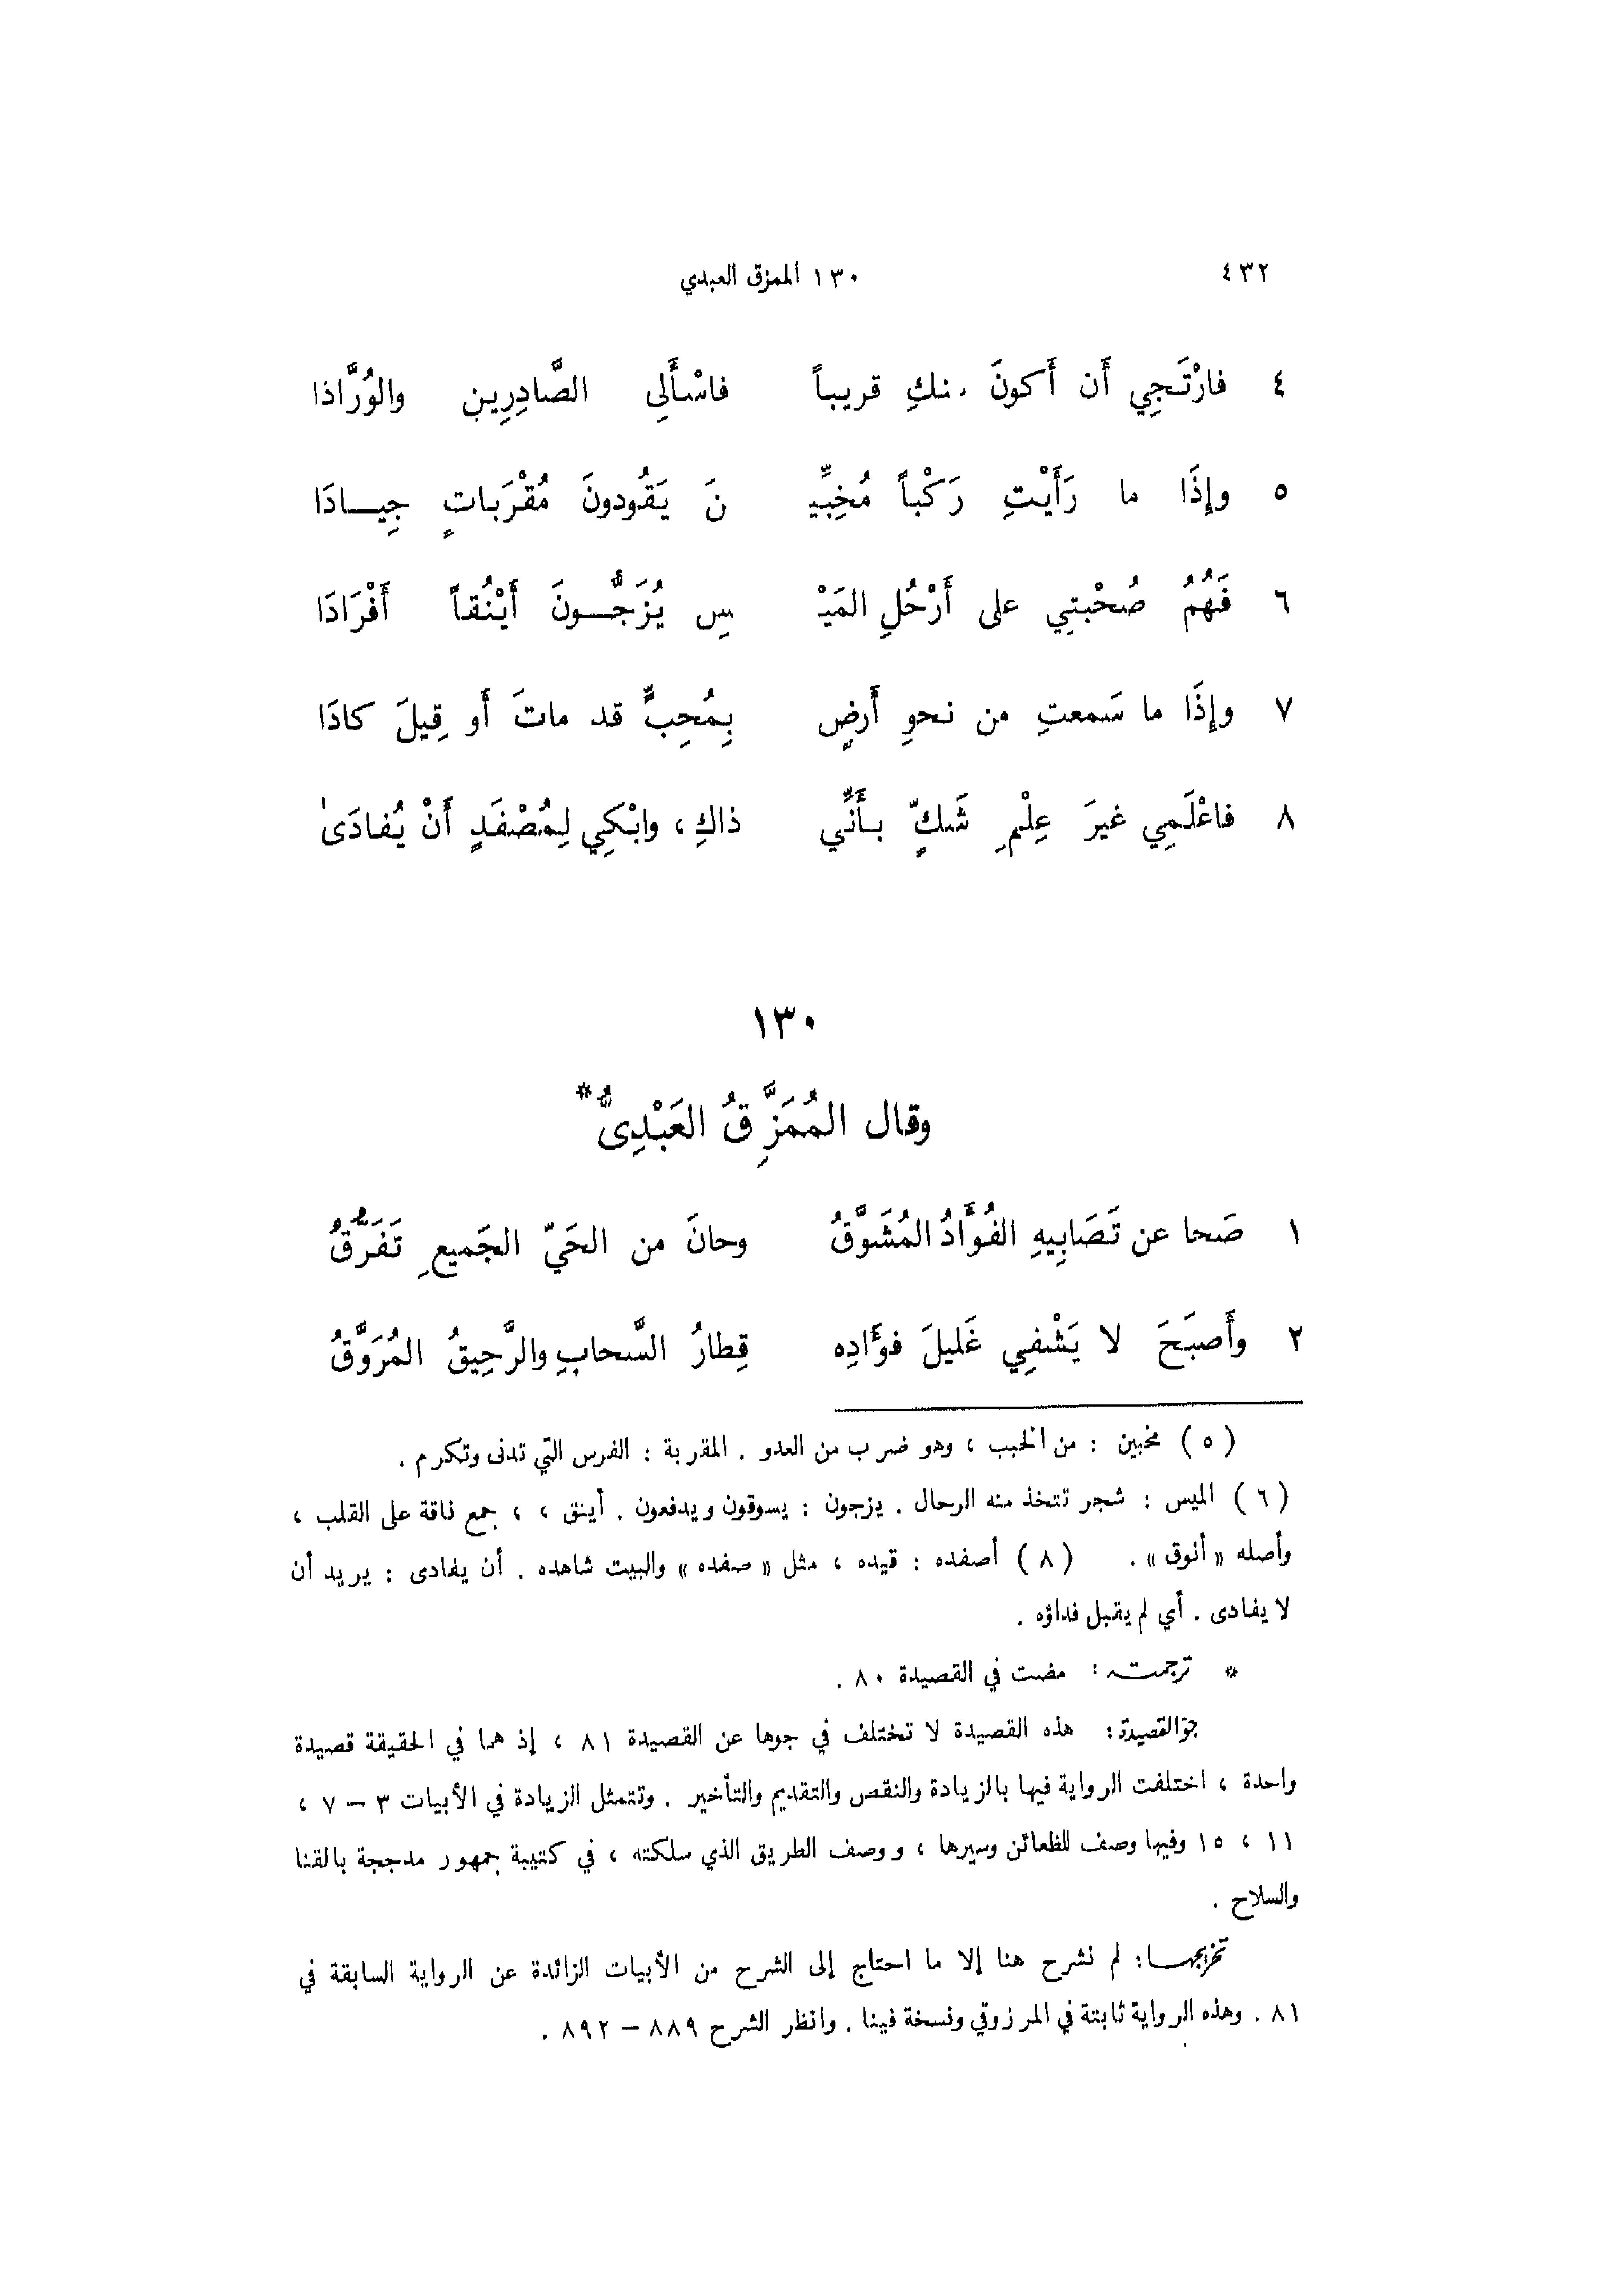 ٤٣٢ ١٣٠ الممزق العبدي
٤ فارْتَجِي أَن أَكونَ منكِ قريباً فاسْأَلِي الصَّادِرِينِ والوُرَّاذا
٥ وإِذَا ما رَأَيْتِ رَكْباً مُخِبِّيـ نَ يَقُودونَ مُقْرَباتٍ جِيـادَا
٦ فَهُمُ صُحْبتِي على أَرْحُلِ المَيْـ سِ يُزَجُّـونَ أَيْنُقاً أَفْرَادَا
٧ وإِذَا ما سَمعتِ من نحوِ أَرضٍ بِمُحِبٍّ قد ماتَ أَو قِيلَ كادَا
٨ فاعْلَمِي غيرَ عِلْمِ شَكٍّ بأَنِّي ذاكِ ، وابْكِي لِمُصْفَدٍ أَنْ يُفادَىٰ
١٣٠
وقال المُمَزِّقُ العَبْدِىُّ*
١ صَحا عن تَصَابِيهِ الفُؤَادُ المُشَوَّقُ وحانَ من الحَيّ الجَميعِ تَفَرُّقُ
٢ وأَصبَحَ لا يَشْفِي غَليلَ فؤَادِه قِطارُ السَّحابِ والرَّحِيقُ المُرَوَّقُ
( ٥ ) مخبين : من الخبب ، وهو ضرب من العدو . المقربة : الفرس التي تدنى وتكرم .
( ٦ ) الميس : شجر تتخذ منه الرحال . يزجون : يسوقون ويدفعون . أينق ، ، جمع ناقة على القلب ،
وأصله « أنوق » . ( ٨ ) أصفده : قيده ، مثل « صفده » والبيت شاهده . أن يفادى : يريد أن
لا يفادى . أي لم يقبل فداؤه .
* ترجمته : مضت في القصيدة ٨٠ .
جو القصيدة : هذه القصيدة لا تختلف في جوها عن القصيدة ٨١ ، إذ هما في الحقيقة قصيدة
واحدة ، اختلفت الرواية فيها بالزيادة والنقص والتقديم والتأخير . وتتمثل الزيادة في الأبيات ٣ – ٧ ،
١١ ، ١٥ وفيها وصف للظعائن وسيرها ، ووصف الطريق الذي سلكته ، في كتيبة جمهور مدججة بالقنا
والسلاح .
تخريجها : لم نشرح هنا إلا ما احتاج إلى الشرح من الأبيات الزائدة عن الرواية السابقة في
٨١ . وهذه الرواية ثابتة في المرزوقي ونسخة فينا . وانظر الشرح ٨٨٩ – ٨٩٢ .